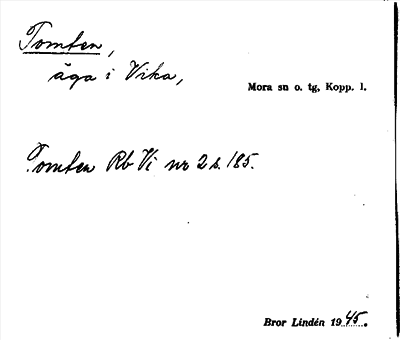 Tomten,
äga i Vika,
Mora sn o. tg, Kopp. l.
Tomten Rb Vi nr 2 s. 185.
Bror Lindén 1945.